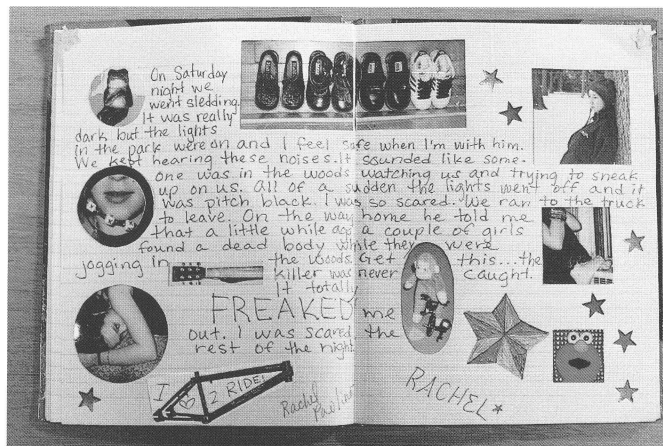 On Saturday
night we
went sledding.
It was really
dark but the lights
in the park were on and I feel safe when I'm with him.
We kept hearing these noises. It sounded like some-
one was in the woods watching us and trying to sneak
up on us. All of a sudden the lights went off and it
was pitch black. I was so scared. We ran to the truck
to leave. On the way home he told me
that a little while ago a couple of girls
found a dead body while they were
jogging in the woods. Get this...the
killer was never caught.
It totally
FREAKED me
out. I was scared the
rest of the night
I 2 RIDE!
Rachel
RACHEL